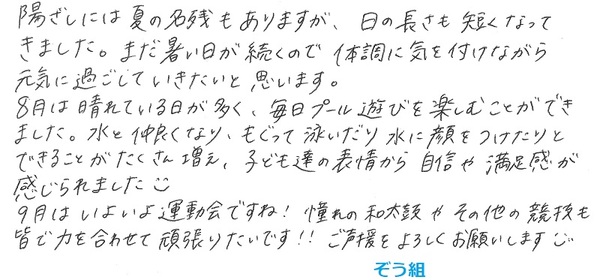 陽ざしには夏の名残もありますが、日の長さも短くなって
きました。まだ暑い日が続くので体調に気を付けながら
元気に過ごしていきたいと思います。
8月は晴れている日が多く、毎日プール遊びを楽しむことができ
ました。水と仲良くなり、もぐって泳いだり水に顔をつけたりと
できることがたくさん増え、子ども達の表情から自信や満足感が
感じられました
9月はいよいよ運動会ですね！憧れの和太鼓やその他の競技も
皆で力を合わせて頑張りたいです!!ご声援をよろしくお願いします
ぞう組